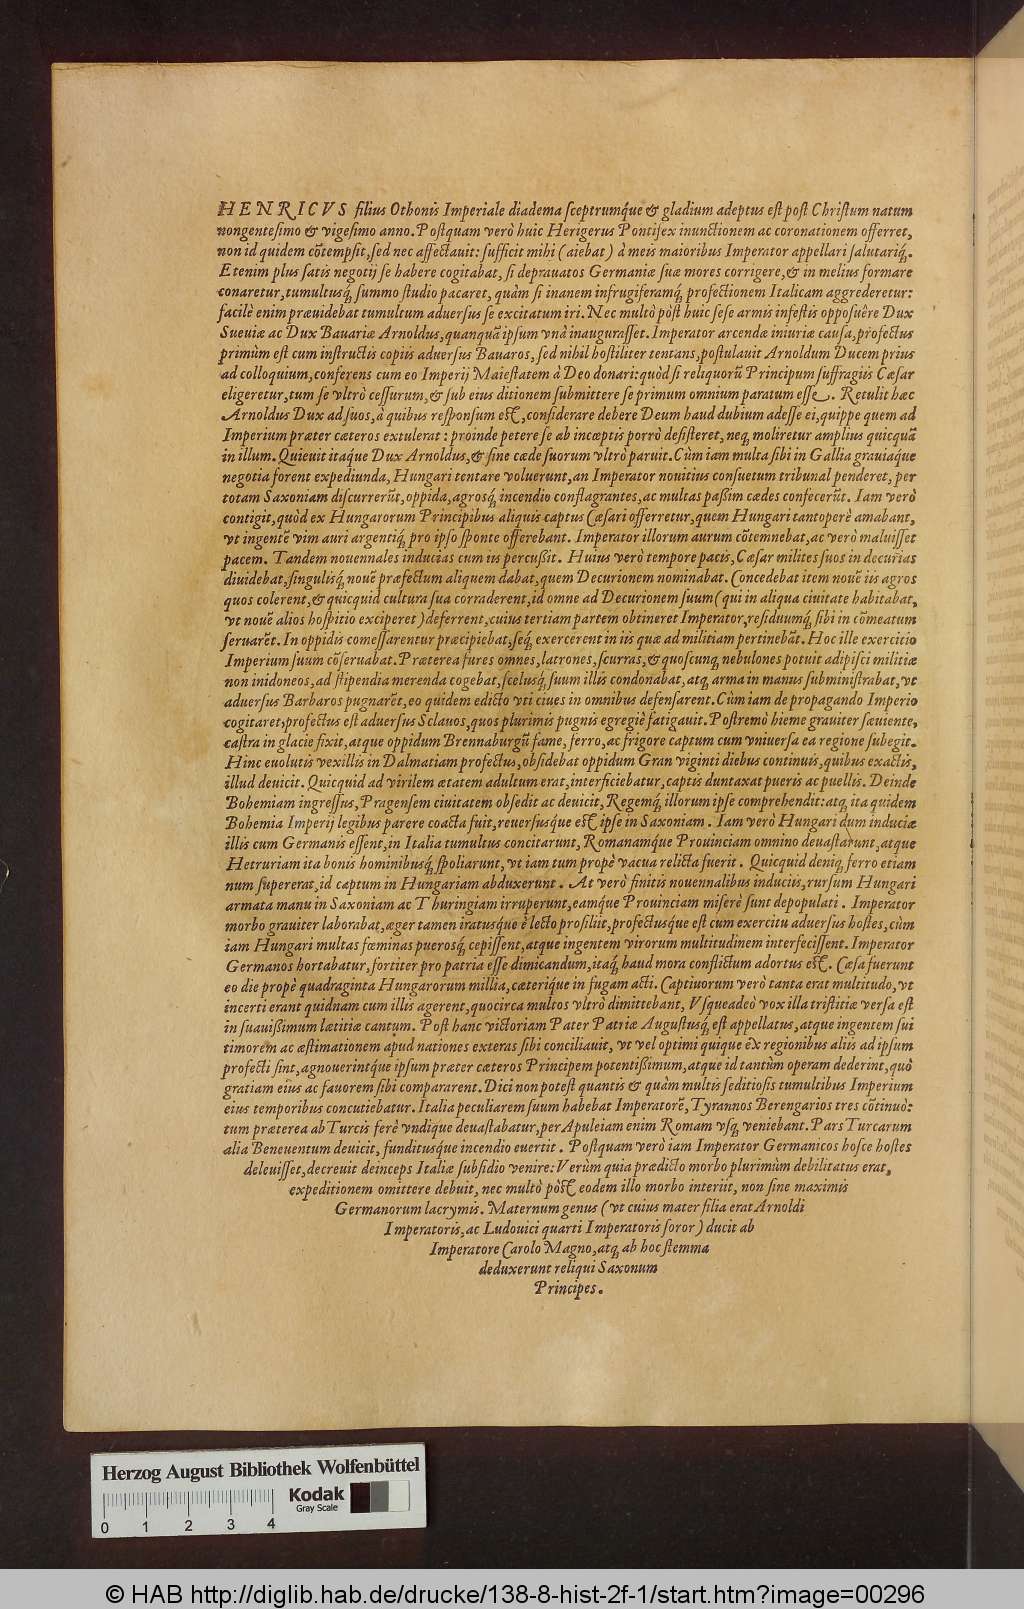 HENRICVS filius Othonis Imperiale diadema ſceptrumq́ue & gladium adeptus eſt poſt Chriſtum natum
nongenteſimo & vigeſimo anno. Poſtquam verò huic Herigerus Pontifex inunctionem ac coronationem offerret,
non id quidem cõtempſit, ſed nec affectauit: ſufficit mihi (aiebat) à meis maioribus Imperator appellari ſalutariq́.
Etenim plus ſatis negotij ſe habere cogitabat, ſi deprauatos Germaniæ ſuæ mores corrigere, & in melius formare
conaretur, tumultusq́ ſummo ſtudio pacaret, quàm ſi inanem infrugiferamq́ profectionem Italicam aggrederetur:
facilè enim præuidebat tumultum aduerſus ſe excitatum iri. Nec multò pòſt huic ſeſe armis infeſtis oppoſuêre Dux
Sueuiæ ac Dux Bauariæ Arnoldus, quanquã ipſum vnà inauguraſſet. Imperator arcendæ iniuriæ cauſa, profectus
primùm eſt cum inſtructis copiis aduerſus Bauaros, ſed nihil hoſtiliter tentans, poſtulauit Arnoldum Ducem prius
ad colloquium, conferens cum eo Imperij Maieſtatem à Deo donari: quòd ſi reliquorũ Principum ſuffragiis Cæſar
eligeretur, tum ſe vltrò ceſſurum, & ſub eius ditionem ſubmittere ſe primum omnium paratum eſſe. Retulit hæc
Arnoldus Dux ad ſuos, à quibus reſponſum eſt, conſiderare debere Deum haud dubium adeſſe ei, quippe quem ad
Imperium præter cæteros extulerat: proinde petere ſe ab incœptis porrò deſiſteret, neq́ moliretur amplius quicquã
in illum. Quieuit itaque Dux Arnoldus, & ſine cæde ſuorum vltrò paruit. Cùm iam multa ſibi in Gallia grauiaq́ue
negotia forent expediunda, Hungari tentare voluerunt, an Imperator nouitius conſuetum tribunal penderet, per
totam Saxoniam diſcurrerũt, oppida, agrosq́ incendio conflagrantes, ac multas paßim cædes confecerũt. Iam verò
contigit, quòd ex Hungarorum Principibus aliquis captus Cæſari offerretur, quem Hungari tantoperè amabant,
vt ingentẽ vim auri argentiq́ pro ipſo ſponte offerebant. Imperator illorum aurum cõtemnebat, ac verò maluiſſet
pacem. Tandem nouennales inducias cum iis percußit. Huius verò tempore pacis, Cæſar milites ſuos in decurias
diuidebat, ſingulisq́ nouẽ præfectum aliquem dabat, quem Decurionem nominabat. Concedebat item nouẽ iis agros
quos colerent, & quicquid cultura ſua corraderent, id omne ad Decurionem ſuum (qui in aliqua ciuitate habitabat,
vt nouẽ alios hoſpitio exciperet) deferrent, cuius tertiam partem obtineret Imperator, reſiduumq́ ſibi in cõmeatum
ſeruarẽt. In oppidis comeſſarentur præcipiebat, ſeq́ exercerent in iis quæ ad militiam pertinebãt. Hoc ille exercitio
Imperium ſuum cõſeruabat. Præterea fures omnes, latrones, ſcurras, & quoſcunq́ nebulones potuit adipiſci militiæ
non inidoneos, ad ſtipendia merenda cogebat, ſcelusq́ ſuum illis condonabat, atq́ arma in manus ſubminiſtrabat, vt
aduerſus Barbaros pugnarẽt, eo quidem edicto vti ciues in omnibus defenſarent. Cùm iam de propagando Imperio
cogitaret, profectus eſt aduerſus Sclauos, quos plurimis pugnis egregiè fatigauit. Poſtremò hieme grauiter ſæuiente,
caſtra in glacie fixit, atque oppidum Brennaburgũ fame, ferro, ac frigore captum cum vniuerſa ea regione ſubegit.
Hinc euolutis vexillis in Dalmatiam profectus, obſidebat oppidum Gran viginti diebus continuis, quibus exactis,
illud deuicit. Quicquid ad virilem ætatem adultum erat, interficiebatur, captis duntaxat pueris ac puellis. Deinde
Bohemiam ingreſſus, Pragenſem ciuitatem obſedit ac deuicit, Regemq́ illorum ipſe comprehendit: atq́ ita quidem
Bohemia Imperij legibus parere coacta fuit, reuerſusque eſt ipſe in Saxoniam. Iam verò Hungari dum induciæ
illis cum Germanis eſſent, in Italia tumultus concitarunt, Romanamque Prouinciam omnino deuaſtarunt, atque
Hetruriam ita bonis hominibusq́ ſpoliarunt, vt iam tum propè vacua relicta fuerit. Quicquid deniq́ ferro etiam
num ſupererat, id captum in Hungariam abduxerunt. At verò finitis nouennalibus induciis, rurſum Hungari
armata manu in Saxoniam ac Thuringiam irruperunt, eamque Prouinciam miſerè ſunt depopulati. Imperator
morbo grauiter laborabat, æger tamen iratusque è lecto proſiliit, profectusque eſt cum exercitu aduerſus hoſtes, cùm
iam Hungari multas fœminas puerosq́ cepiſſent, atque ingentem virorum multitudinem interfeciſſent. Imperator
Germanos hortabatur, fortiter pro patria eſſe dimicandum, itaq́ haud mora conflictum adortus eſt. Cæſa fuerunt
eo die propè quadraginta Hungarorum millia, cæteriq́ue in fugam acti. Captiuorum verò tanta erat multitudo, vt
incerti erant quidnam cum illis agerent, quocirca multos vltrò dimittebant, Vſqueadeò vox illa triſtitiæ verſa eſt
in ſuauißimum lætitiæ cantum. Poſt hanc victoriam Pater Patriæ Auguſtusq́ eſt appellatus, atque ingentem ſui
timorem ac æſtimationem apud nationes exteras ſibi conciliauit, vt vel optimi quique ex regionibus aliis ad ipſum
profecti ſint, agnouerintq́ue ipſum præter cæteros Principem potentißimum, atque id tantùm operam dederint, quò
gratiam eius ac fauorem ſibi compararent. Dici non poteſt quantis & quàm multis ſeditioſis tumultibus Imperium
eius temporibus concutiebatur. Italia peculiarem ſuum habebat Imperatorẽ, Tyrannos Berengarios tres cõtinuò:
tum præterea ab Turcis ferè vndique deuaſtabatur, per Apuleiam enim Romam vſq́ veniebant. Pars Turcarum
alia Beneuentum deuicit, funditusque incendio euertit. Poſtquam verò iam Imperator Germanicos hoſce hoſtes
deleuiſſet, decreuit deinceps Italiæ ſubſidio venire: Verùm quia prædicto morbo plurimùm debilitatus erat,
expeditionem omittere debuit, nec multò pòſt eodem illo morbo interiit, non ſine maximis
Germanorum lacrymis. Maternum genus (vt cuius mater filia erat Arnoldi
Imperatoris, ac Ludouici quarti Imperatoris ſoror) ducit ab
Imperatore Carolo Magno, atq́ ab hoc ſtemma
deduxerunt reliqui Saxonum
Principes.
Herzog August Bibliothek Wolfenbüttel
Kodak
Gray Scale
0 1 2 3 4
© HAB http://diglib.hab.de/drucke/138-8-hist-2f-1/start.htm?image=00296